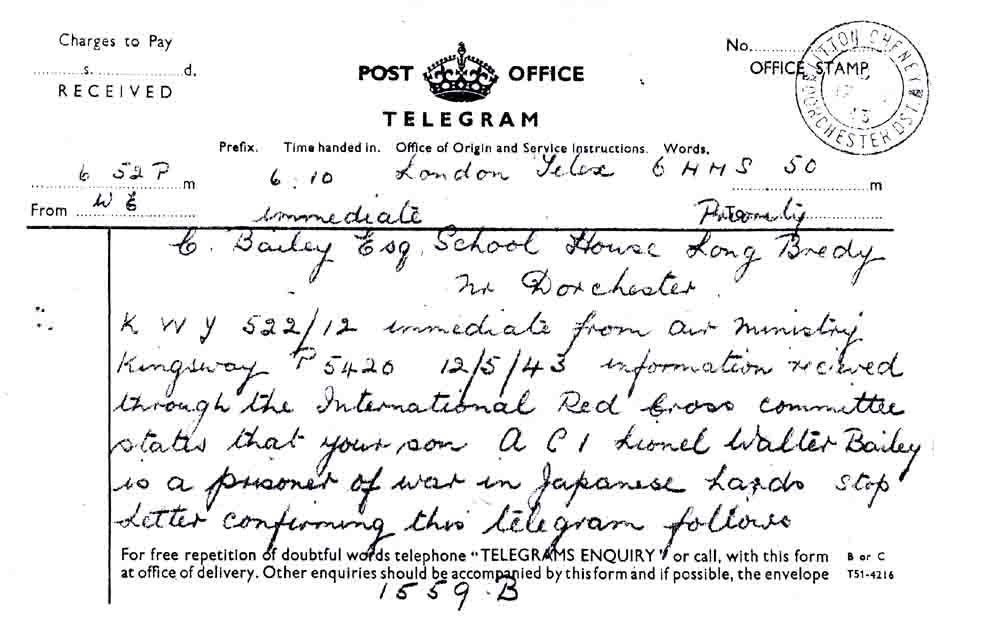 Charges to Pay
s. d.
RECEIVED
POST OFFICE
TELEGRAM
No.
OFFICE STAMP
LITTON CHENEY
DORCHESTER DST.
Prefix. Time handed in. Office of Origin and Service Instructions. Words.
6 52 P m 6:10 London Telex 6 HHS 50 m
From W E immediate Priority
C. Bailey Esq. School House Long Bredy
Nr Dorchester.
K W Y 522/12 immediate from air ministry
Kingsway P 5420 12/5/43 information recieved
through the International Red Cross committee
states that your son A C 1 Lionel Walter Bailey
is a prisoner of war in Japanese hands stop
Letter confirming this telegram follows
For free repetition of doubtful words telephone "TELEGRAMS ENQUIRY" or call, with this form B or C
at office of delivery. Other enquiries should be accompanied by this form and if possible, the envelope T51-4216
1559.B